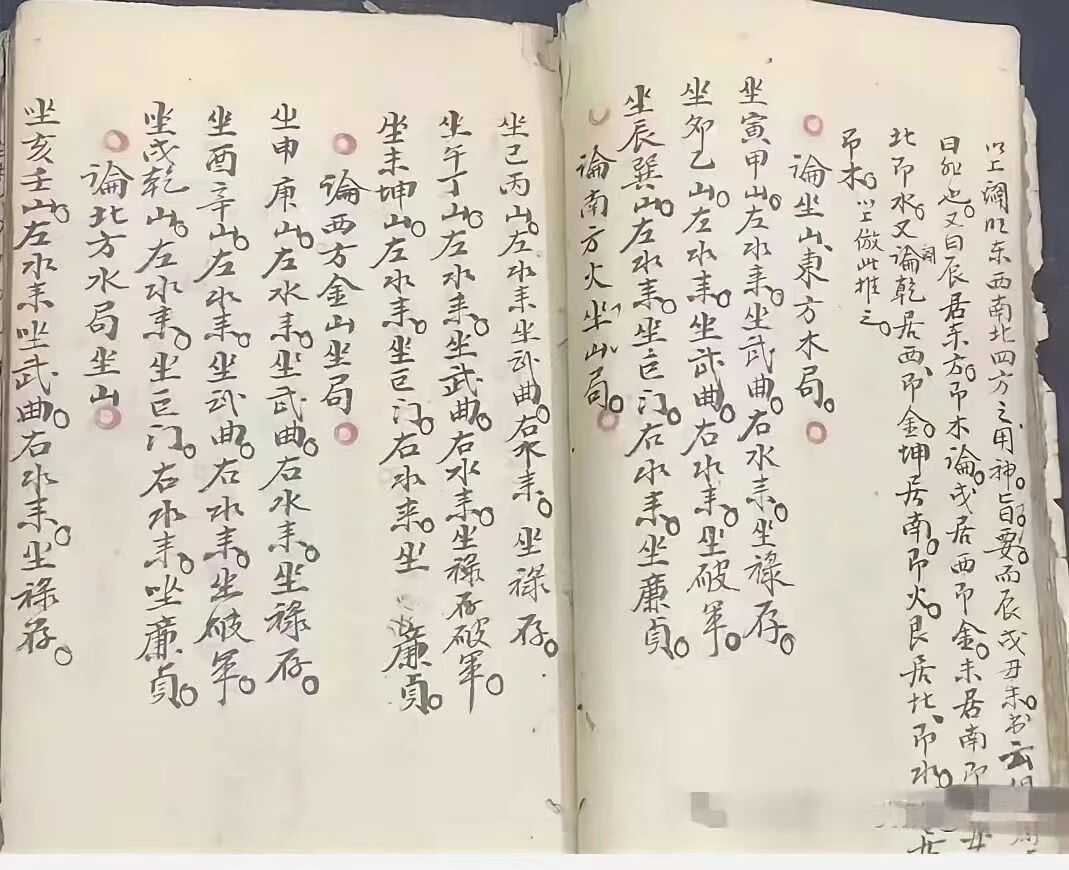 以上阐明东西南北四方之用神。旨要。而辰戌丑未。书云
曰 也。又曰辰居东方。即木论。戌居西即金。未居南即 丑
北即水。又论乾居西、即金。坤居南。即火。艮居北、即水。
即木。以上倣此推之。
論坐山東方木局。
坐寅甲山。左水耒。坐武曲。右水耒。坐祿存。
坐卯乙山。左水耒。坐武曲。右水耒。坐破军。
坐辰巽山。左水耒。坐巨门。右水耒。坐廉貞。
論南方火坐山局。
坐巳丙山。左水耒坐武曲。右水耒。坐祿存。
坐午丁山。左水耒。坐武曲。右水耒。坐祿存破军。
坐未坤山。左水耒。坐巨门。右水来。坐廉貞。
論西方金山坐局
坐申庚山。左水耒。坐武曲。右水耒。坐祿存。
坐酉辛山。左水耒。坐武曲。右水耒。坐破军。
坐戌乾山。左水耒。坐巨门。右水耒。坐廉貞。
論北方水局坐山
坐亥壬山。左水耒坐武曲。右水耒。坐祿存。